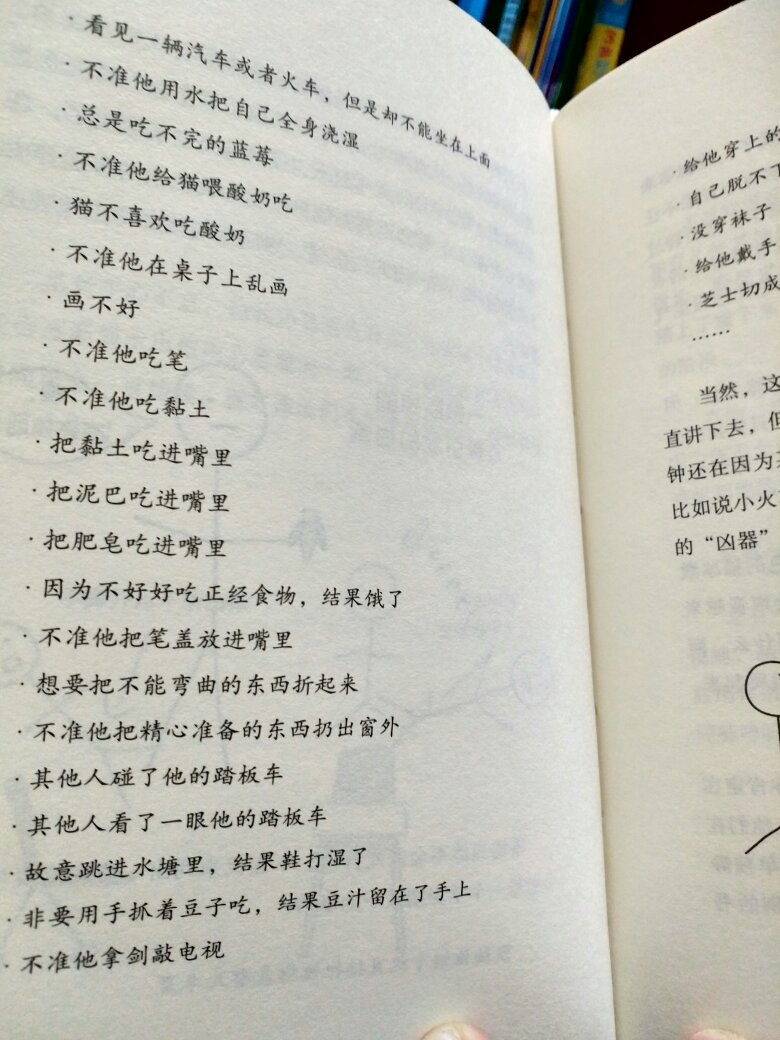 · 看见一辆汽车或者火车，但是却不能坐在上面
· 不准他用水把自己全身浇湿
· 总是吃不完的蓝莓
· 不准他给猫喂酸奶吃
· 猫不喜欢吃酸奶
· 不准他在桌子上乱画
· 画不好
· 不准他吃笔
· 不准他吃黏土
· 把黏土吃进嘴里
· 把泥巴吃进嘴里
· 把肥皂吃进嘴里
· 因为不好好吃正经食物，结果饿了
· 不准他把笔盖放进嘴里
· 想要把不能弯曲的东西折起来
· 不准他把精心准备的东西扔出窗外
· 其他人碰了他的踏板车
· 其他人看了一眼他的踏板车
· 故意跳进水塘里，结果鞋打湿了
· 非要用手抓着豆子吃，结果豆汁留在了手上
· 不准他拿剑敲电视
· 给他穿上的
· 自己脱不下
· 没穿袜子
· 给他戴手
· 芝士切成
……
当然，这
直讲下去，但
钟还在因为某
比如说小火
的“凶器”